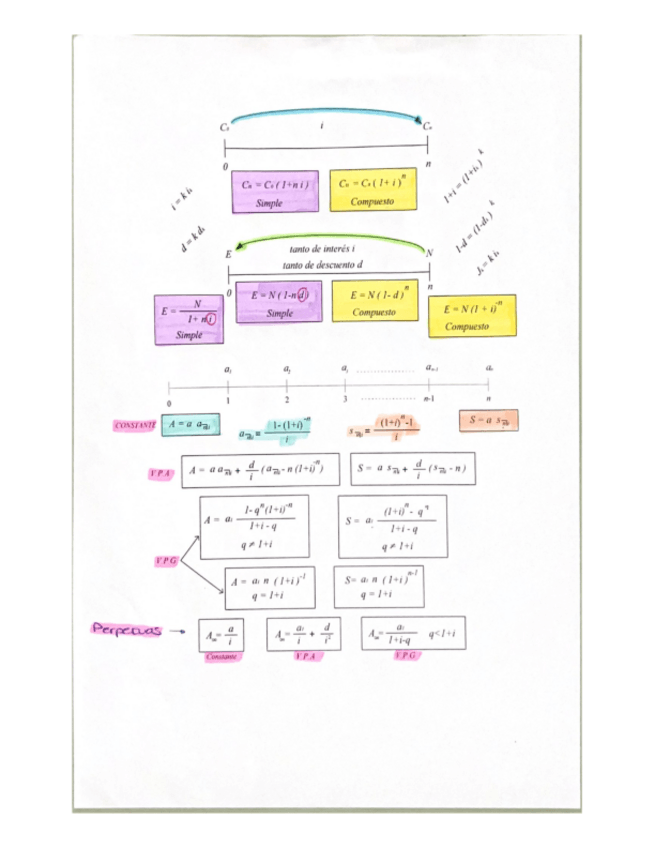 C₀ i Cₙ
0 n
Cₙ = C₀ (1+n i)
Simple
Cₙ = C₀ (1+ i)ⁿ
Compuesto
i = k iₖ
d = k dₖ
1+i = (1+iₖ)ᵏ
1-d = (1-dₖ)ᵏ
Jₖ = k iₖ
E tanto de interés i N
tanto de descuento d
0 n
E = N / (1+ ni)
Simple
E = N (1-nd)
Simple
E = N (1- d)ⁿ
Compuesto
E = N (1 + i)⁻ⁿ
Compuesto
a₁ a₂ a₃ .............. aₙ₋₁ aₙ
0 1 2 3 .............. n-1 n
CONSTANTE
A = a aₙ┐ᵢ
aₙ┐ᵢ = (1-(1+i)⁻ⁿ) / i
sₙ┐ᵢ = ((1+i)ⁿ-1) / i
S = a sₙ┐ᵢ
V.P.A
A = a aₙ┐ᵢ + d/i (aₙ┐ᵢ - n (1+i)⁻ⁿ)
S = a sₙ┐ᵢ + d/i (sₙ┐ᵢ - n)
V.P.G
A = a₁ (1- qⁿ(1+i)⁻ⁿ) / (1+i - q)
q ≠ 1+i
S = a₁ ((1+i)ⁿ - qⁿ) / (1+i - q)
q ≠ 1+i
A = a₁ n (1+i)⁻¹
q = 1+i
S= a₁ n (1+i)ⁿ⁻¹
q = 1+i
Perpetuas
A∞ = a/i
Constante
A∞ = a₁/i + d/i²
V.P.A
A∞ = a₁/(1+i-q) q<1+i
V.P.G